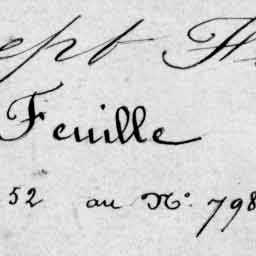 ept
Feuille
52 au N° 798